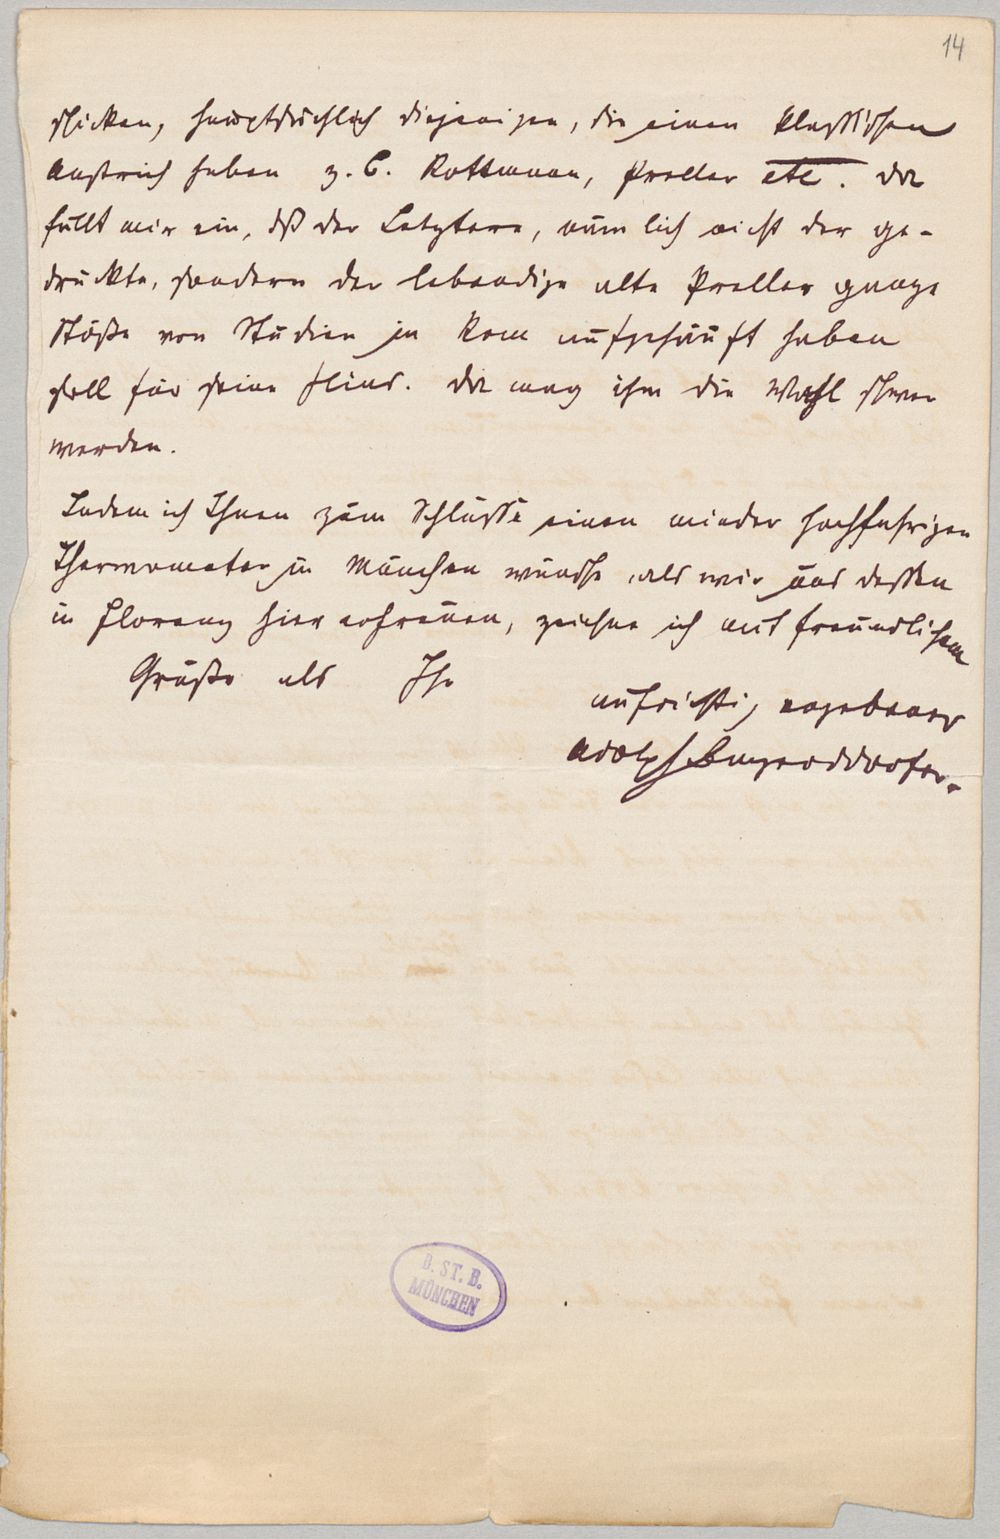 14
schicken, hauptsächlich diejenigen, die einen klassischen
Anstrich haben z. B. Rottmann, Preller etc. Da
fällt mir ein, daß der Letztere, nämlich nicht der ge-
druckte, sondern der lebendige alte Preller ganze
Stöße von Studien in Rom aufgehäuft haben
soll für seine Ilias. Da mag ihm die Wahl schwer
werden.
Indem ich Ihnen zum Schlusse einen minder hochfahrigen
Thermometer in München wünsche, als wir uns dessen
in Florenz hier erfreuen, zeichne ich mit freundlichem
Gruße als Ihr
aufrichtig ergebener
Adolph Bayersdorfer.
B. ST. B.
MÜNCHEN